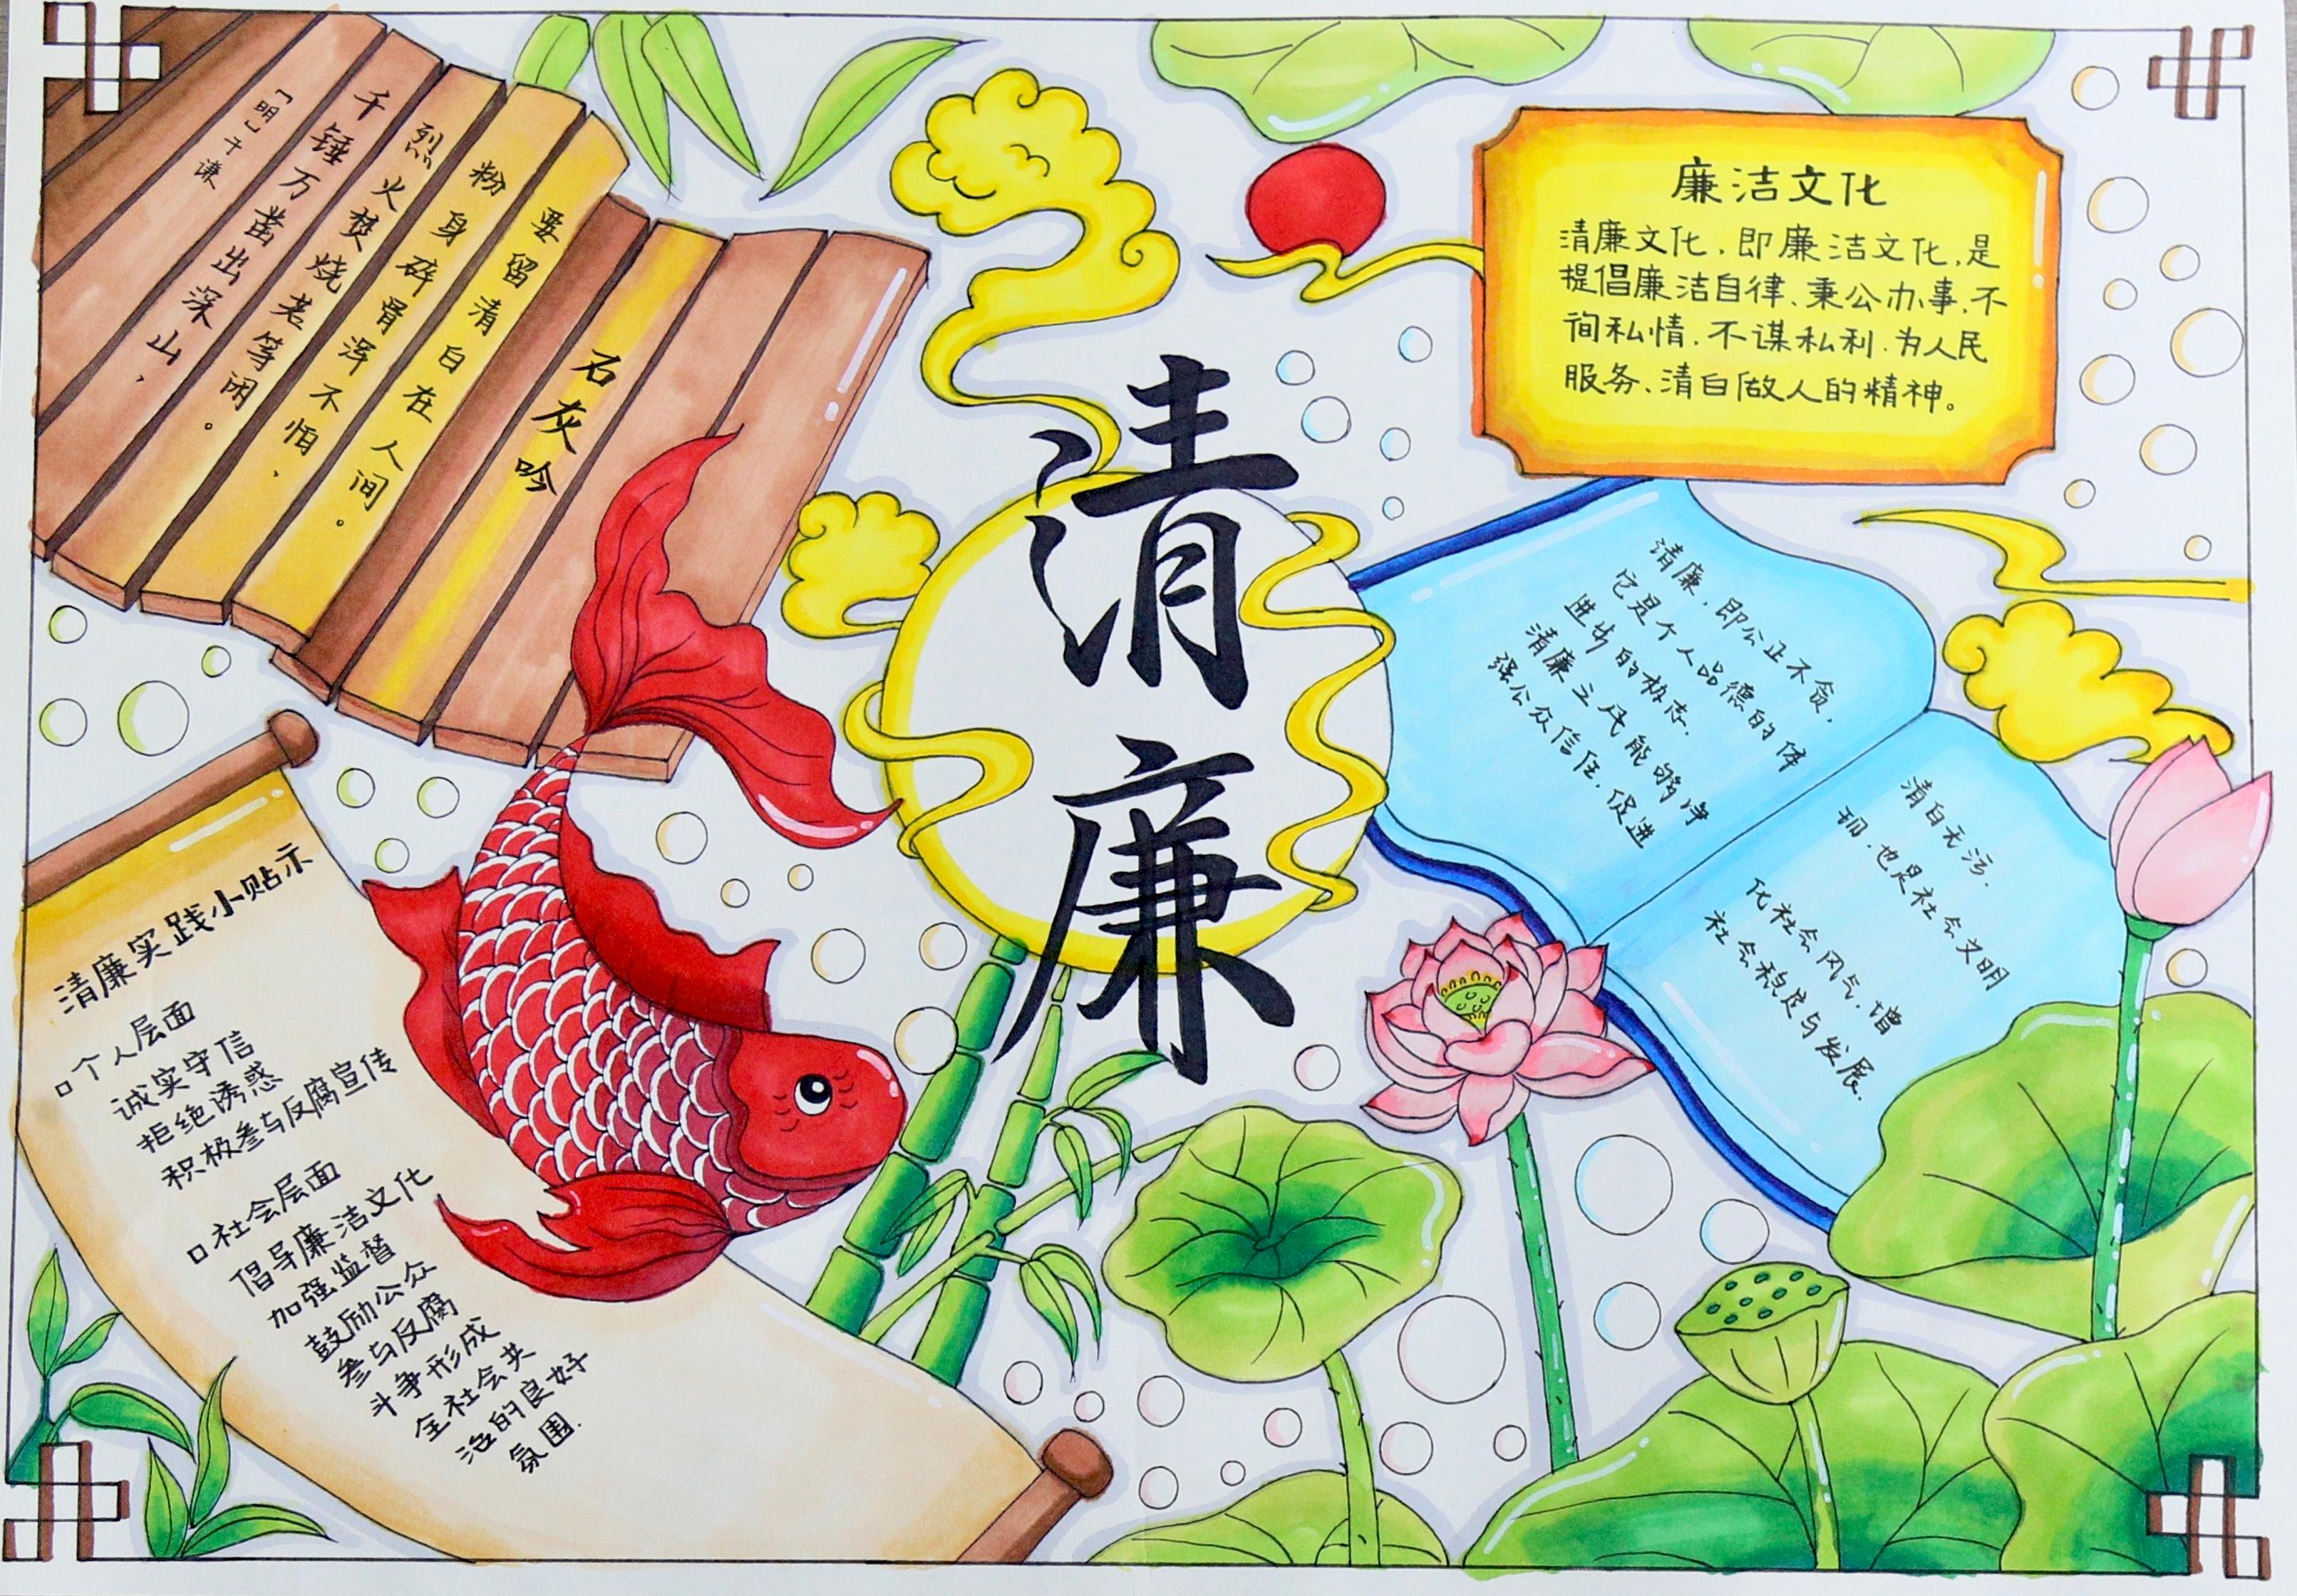 石灰吟
「明」于谦
千锤万凿出深山，
烈火焚烧若等闲。
粉身碎骨浑不怕，
要留清白在人间。
清廉
廉洁文化
清廉文化，即廉洁文化，是
提倡廉洁自律、秉公办事、不
徇私情、不谋私利、为人民
服务、清白做人的精神。
清廉，即公正不贪，清白无污.
它是个人品德的体现，也是社会文明
进步的标志.
清廉之风能够净化社会风气，增
强公众信任，促进社会稳定与发展.
清廉实践小贴示
□个人层面
诚实守信
拒绝诱惑
积极参与反腐宣传
□社会层面
倡导廉洁文化
加强监督
鼓励公众
参与反腐
斗争形成
全社会共
治的良好
氛围.